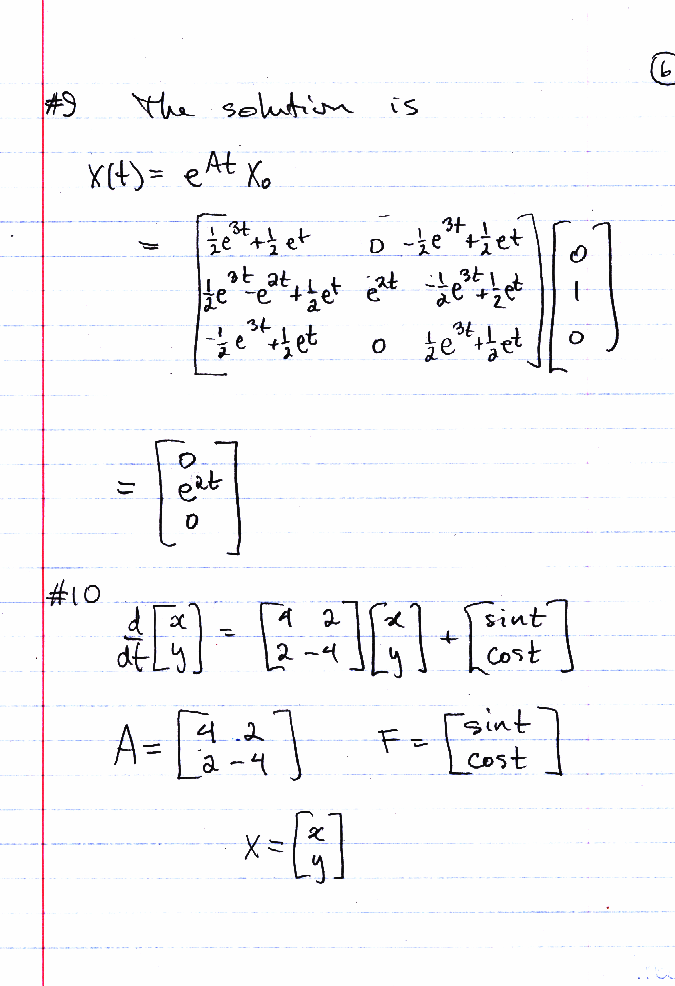 6
#9 The solution is
X(t) = e^{At} X₀
= [ ½e^{3t}+½e^t   0   -½e^{3t}+½e^t ] [ 0 ]
[ ½e^{3t}-e^{2t}+½e^t   e^{2t}   -½e^{3t}+½e^t ] [ 1 ]
[ -½e^{3t}+½e^t   0   ½e^{3t}+½e^t ] [ 0 ]
= [ 0 ]
[ e^{2t} ]
[ 0 ]
#10
d/dt [ x ] = [ 4 2 ] [ x ] + [ sint ]
[ y ] [ 2 -4 ] [ y ] [ cost ]
A = [ 4 2 ] F = [ sint ]
[ 2 -4 ] [ cost ]
X = [ x ]
[ y ]